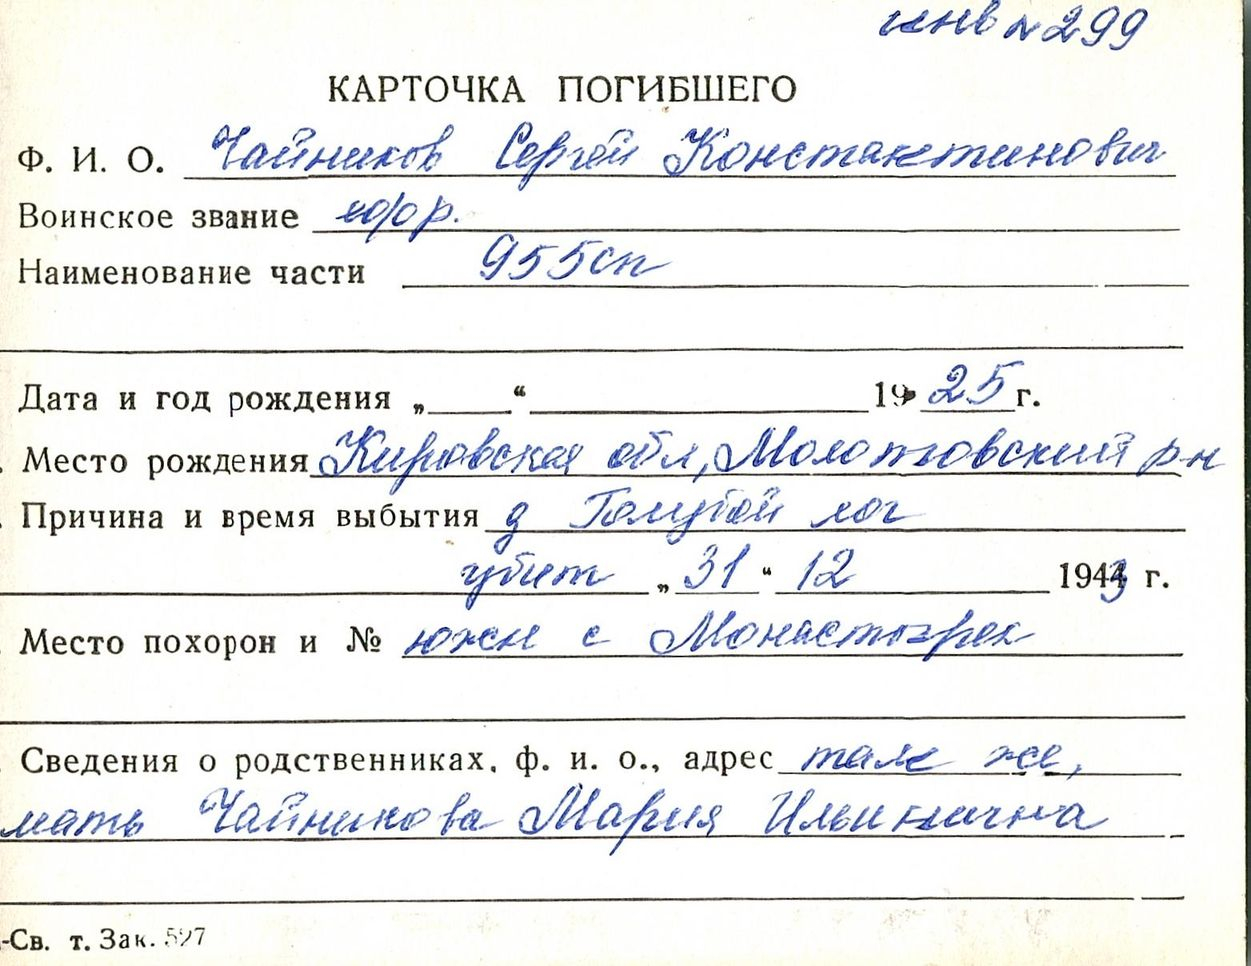 инв № 299
КАРТОЧКА ПОГИБШЕГО
Ф. И. О. Чайников Сергей Константинович
Воинское звание ефр.
Наименование части 955сп
Дата и год рождения „ “ 1925 г.
Место рождения Кировская обл, Молотовский р-н
Причина и время выбытия д Голубой лог
убит „ 31 “ 12 1943 г.
Место похорон и № южн с Монастырек
Сведения о родственниках, ф. и. о., адрес там же,
мать Чайникова Мария Ильинична
-Св. т. Зак. 527